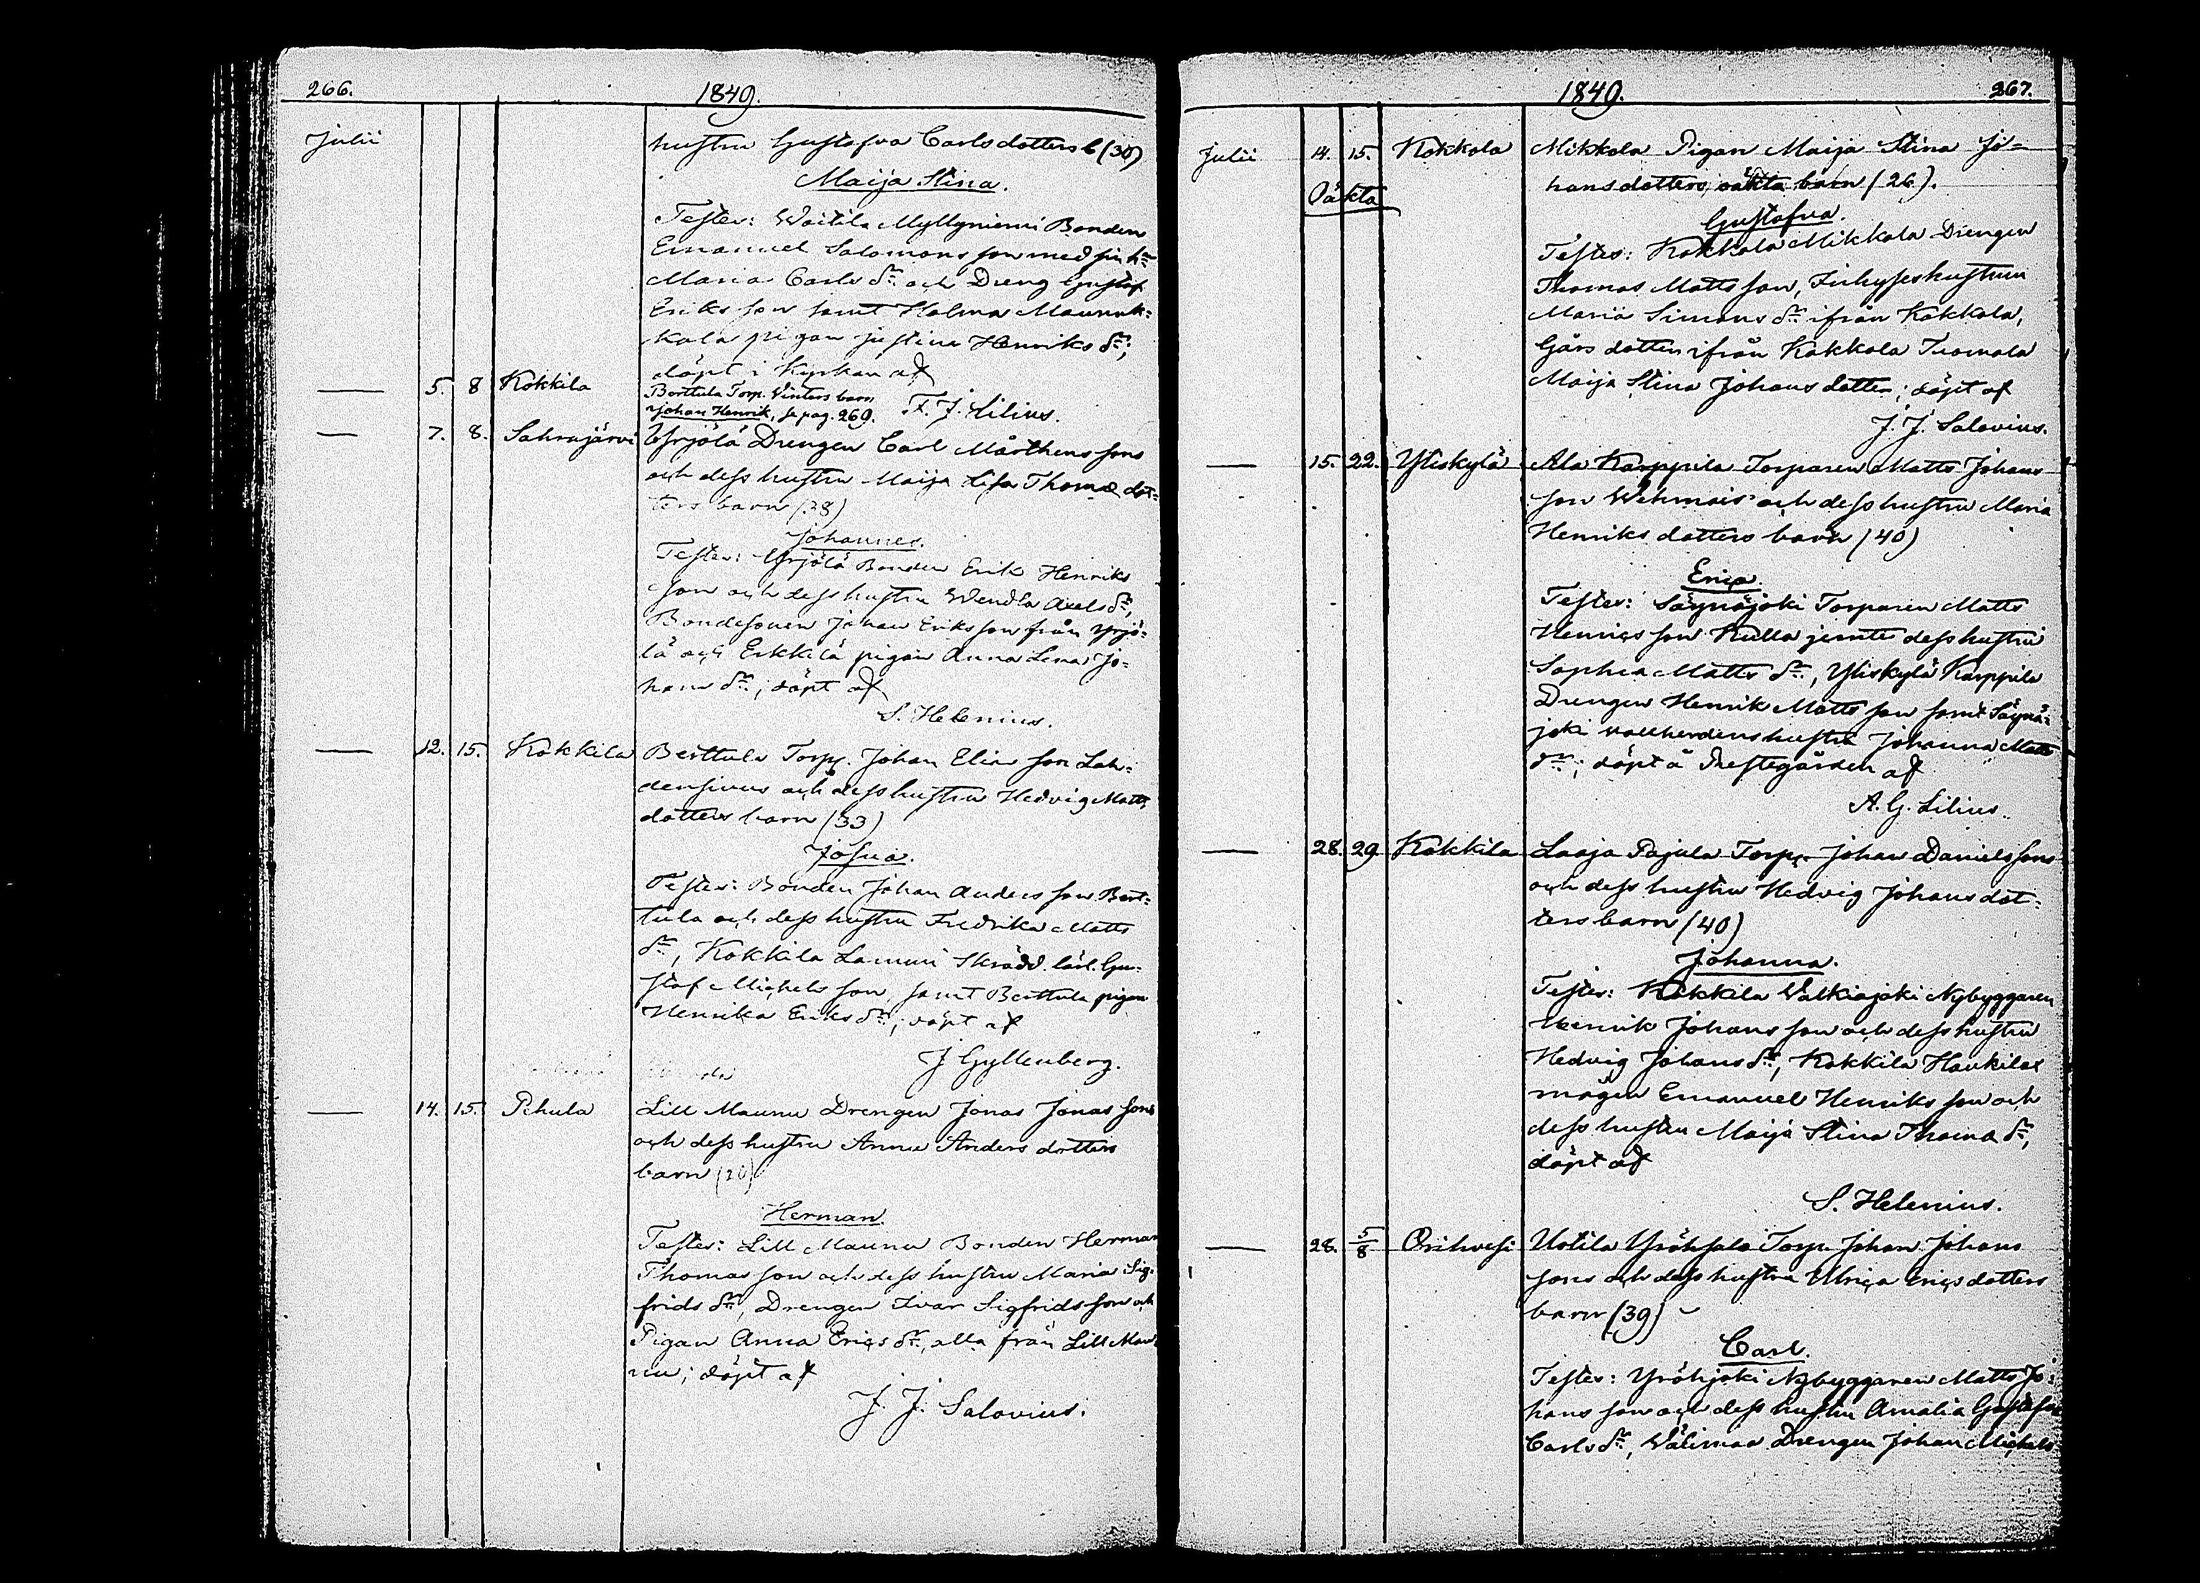 266.
1849.
Julii
hustru Gustafva Carlsdotters b (30)
Maija Stina.
Testes: Waitila Myllyniemi Bonden
Emanuel Salomons son med sin h:
Maria Carls dr. och Dreng Gustaf
Eriks son samt Halma Maunuk=
kala pigan Justina Henriks dr.;
döpt i Kyrkan af
F. J. Lilius.
— 5. 8 Kokkila Berttula Torp. Winters barn
Johan Henrik, se pag. 269.
— 7. 8. Sahrajärvi Yrjölä Drengen Carl Mårthens sons
och dess hustru Maija Lisa Thomæ dot=
ters barn (38)
Johannes.
Testes: Yrjölä Bonden Erik Henriks
son och dess hustru Wendla Axels dr,
Bondesonen Johan Eriks son från Yrjö=
lä och Erkkilä pigan Anna Lena Jo=
hans dr.; döpt af
S. Helenius.
— 12. 15. Kokkila Berttula Torp. Johan Elias son Lah=
densivus och dess hustru Hedvig Matts
dotters barn (33)
Josua.
Testes: Bonden Johan Anders son Bert=
tula och dess hustru Fredrika Matts
dr, Kokkila Lammi Skrädd. lärl. Gu=
staf Michels son, samt Berttula pigan
Henrika Eriks dr.; döpt af
J Gyllenberg.
— 14. 15. Pihula Lill Maunu Drengen Jonas Jonas sons
och dess hustru Anna Anders dotters
barn (20)
Herman.
Testes: Lill Maunu Bonden Herman
Thomas son och dess hustru Maria Sig=
frids dr, Drengen Ivar Sigfrids son och
Pigan Anna Erics dr, alla från Lill Mau
nu; döpt af
J. J. Salovius.
1849.
267.
Julii 14. 15. Kokkola Mikkola Pigan Maija Stina Jo=
Oäkta
hansdotters, oäkta barn (26).
Gustafva.
Testes: Kokkola Mikkola Drengen
Thomas Matts son, Inhyseshustrun
Maria Simons dr. ifrån Kokkola,
Gårsdotter ifrån Kokkola Tuomola
Maija Stina Johans dotter; döpt af
J. J. Salovius.
— 15. 22. Yliskylä Ala Karppila Torparen Matts Johans
son Wehmais och dess hustru Maria
Henriks dotters barn (40)
Erica.
Testes: Säynäjoki Torparen Matts
Henrics son Kulla jemte dess hustru
Sophia Matts dr., Yliskylä Karppila
Drengen Henrik Matts son samt Säynä=
joki vallherdens hustru Johanna Matts
dr.; döpt å Prestegården af
A. G. Lilius.
— 28. 29 Kokkila Laaja Pajula Torp. Johan Daniels sons
och dess hustru Hedvig Johans dot=
ters barn (40)
Johanna.
Testes: Kokkila Walkiajoki Nybyggaren
Henrik Johans son och dess hustru
Hedvig Johans dr, Kokkila Haukilax
mågen Emanuel Henriks son och
dess hustru Maija Stina Thoma dr,
döpt af
S. Helenius.
— 28. 5/8 Orihvesi Uotila Yröhsala Torp. Johan Johans
sons och dess hustru Ulrica Erics dotters
barn (39)
Carl.
Testes: Yröhjoki Nybyggaren Matts Jo=
hans son och dess hustru Amalia Gustafva
Carls dr, Wälimaa Drengen Johan Michels